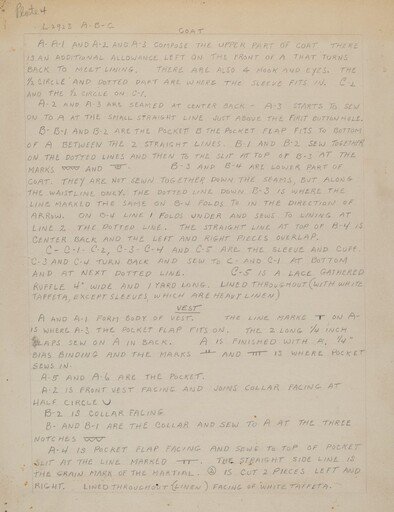 Plate 4
L-2923 A-B-C
COAT
A-A-1 AND A-2 AND A-3 COMPOSE THE UPPER PART OF COAT THERE
IS AN ADDITIONAL ALLOWANCE LEFT ON THE FRONT OF A THAT TURNS
BACK TO MEET LINING. THERE ARE ALSO 4 HOOK AND EYES. THE
1/2 CIRCLE AND DOTTED DART ARE WHERE THE SLEEVE FITS IN. C-2
AND THE 1/2 CIRCLE ON C-1.
A-2 AND A-3 ARE SEAMED AT CENTER BACK - A-3 STARTS TO SEW
ON TO A AT THE SMALL STRAIGHT LINE JUST ABOVE THE FIRST BUTTON HOLE.
B-B-1 AND B-2 ARE THE POCKET B THE POCKET FLAP FITS TO BOTTOM
OF A BETWEEN THE 2 STRAIGHT LINES. B-1 AND B-2 SEW TOGETHER
ON THE DOTTED LINES AND THEN TO THE SLIT AT TOP OF B-3 AT THE
MARKS AND . B-3 AND B-4 ARE LOWER PART OF
COAT. THEY ARE NOT SEWN TOGETHER DOWN THE SEAMS, BUT ALONG
THE WAISTLINE ONLY. THE DOTTED LINE DOWN B-3 IS WHERE THE
LINE MARKED THE SAME ON B-4 FOLDS TO IN THE DIRECTION OF
ARROW. ON B-4 LINE 1 FOLDS UNDER AND SEWS TO LINING AT
LINE 2 THE DOTTED LINE. THE STRAIGHT LINE AT TOP OF B-4 IS
CENTER BACK AND THE LEFT AND RIGHT PIECES OVERLAP.
C-C-1-C-2, C-3-C-4 AND C-5 ARE THE SLEEVE AND CUFF.
C-3 AND C-4 TURN BACK AND SEW TO C- AND C-1 AT BOTTOM
AND AT NEXT DOTTED LINE. C-5 IS A LACE GATHERED
RUFFLE 4" WIDE AND 1 YARD LONG. LINED THROUGHOUT (WITH WHITE
TAFFETA, EXCEPT SLEEVES, WHICH ARE HEAVY LINEN)
VEST
A AND A-1 FORM BODY OF VEST. THE LINE MARKED ON A-
IS WHERE A-3 THE POCKET FLAP FITS ON. THE 2 LONG 1/4 INCH
FLAPS SEW ON A IN BACK. A IS FINISHED WITH A, 1/4"
BIAS BINDING AND THE MARKS AND IS WHERE POCKET
SEWS IN.
A-5 AND A-6 ARE THE POCKET.
A-2 IS FRONT VEST FACING AND JOINS COLLAR FACING AT
HALF CIRCLE
B-2 IS COLLAR FACING
B- AND B-1 ARE THE COLLAR AND SEW TO A AT THE THREE
NOTCHES
A-4 IS POCKET FLAP FACING AND SEWS TO TOP OF POCKET
SLIT AT THE LINE MARKED . THE STRAIGHT SIDE LINE IS
THE GRAIN MARK OF THE MARTIAL. IS CUT 2 PIECES LEFT AND
RIGHT. LINED THROUGHOUT (LINEN) FACING OF WHITE TAFFETA.